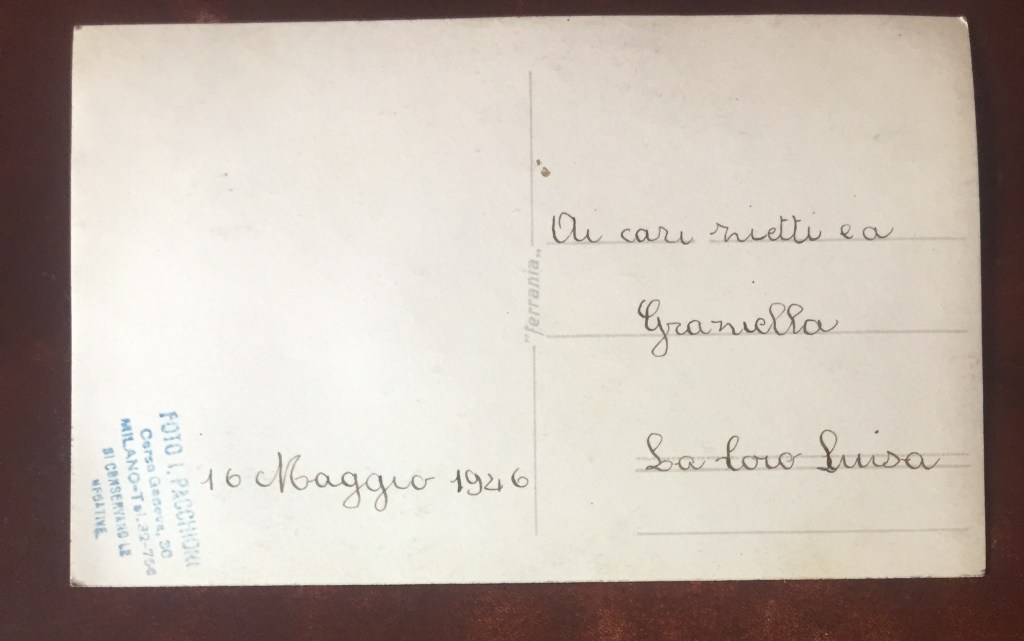 Ai cari zietti e a
Graziella
La loro Luisa
16 Maggio 1946
"ferrania"
FOTO I. PACCHIONI
Corso Genova, 30
MILANO-Tel. 32-756
SI CONSERVANO LE
NEGATIVE